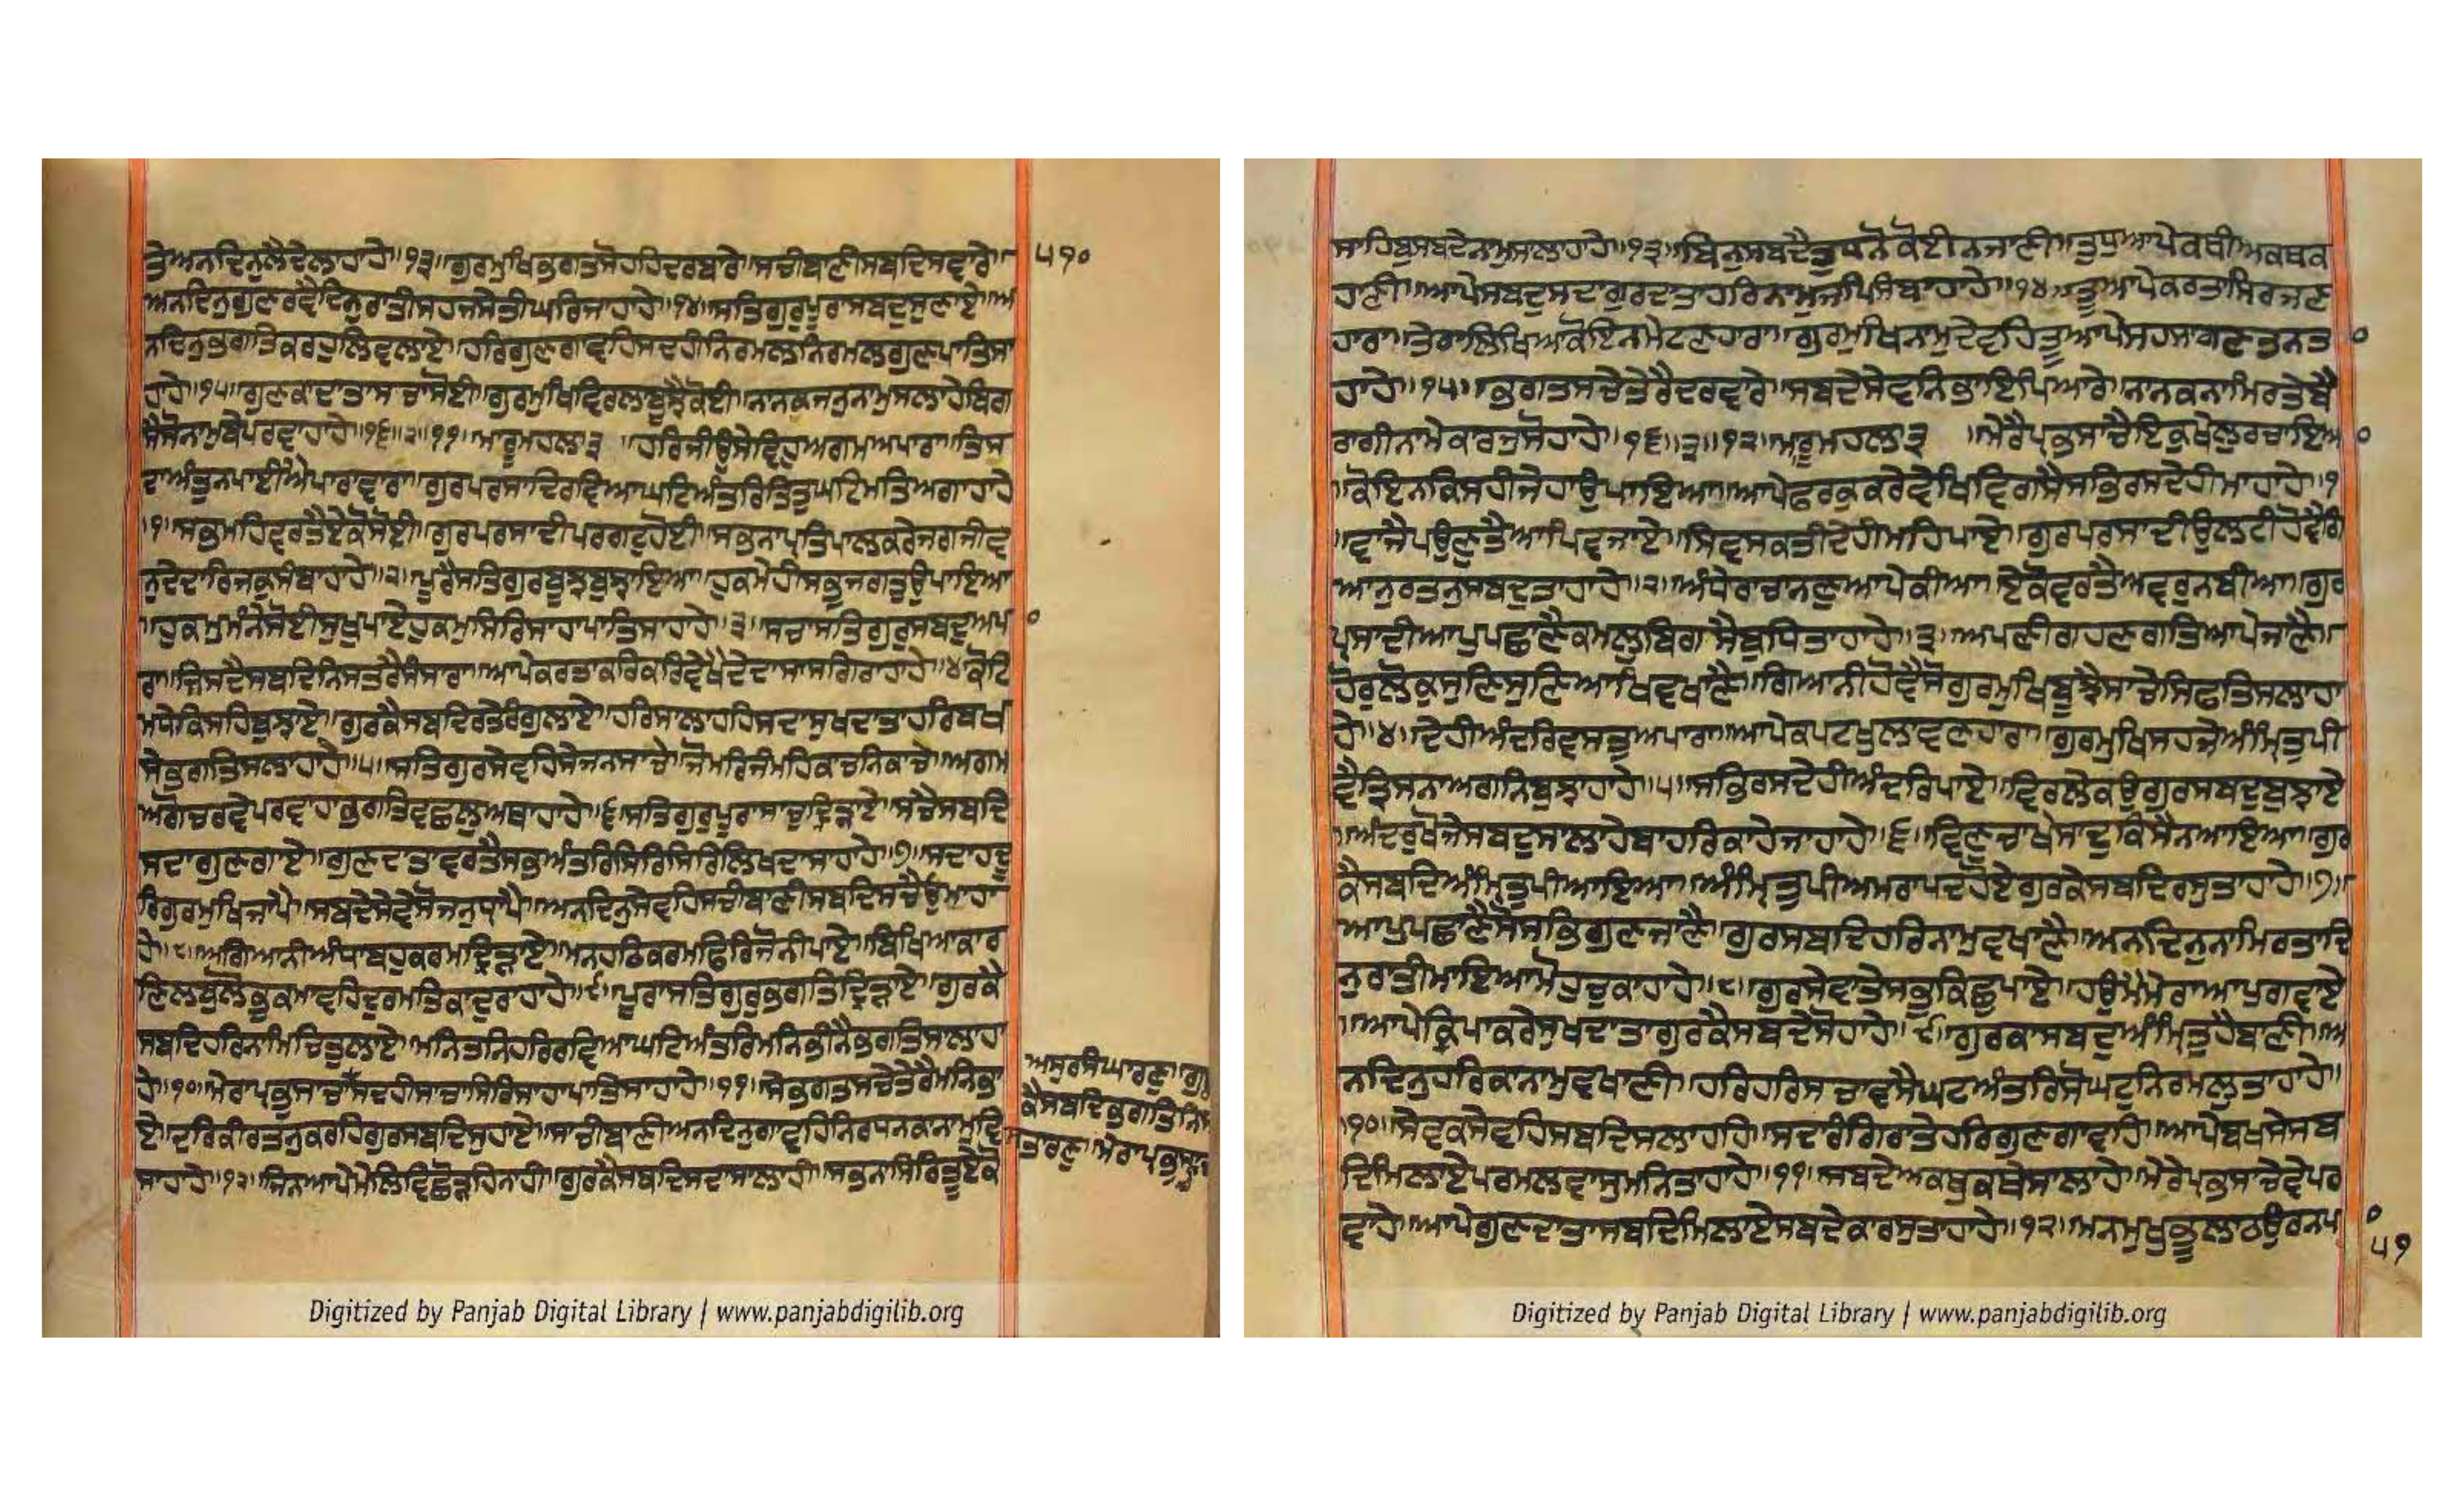 ਤੇ॥ਅਨਦਿਨੁਲੈਦੇਲਾਹਾਹੇ॥੧੩॥ਗੁਰਮੁਖਿਭਗਤਸੋਹਹਿਦਰਬਾਰੇ॥ਸਚੀਬਾਣੀਸਬਦਿਸਵਾਰੇ॥
ਅਨਦਿਨੁਗੁਣਰਵੈਦਿਨੁਰਾਤੀਸਹਜਸੇਤੀਘਰਿਜਾਹਾਹੇ॥੧੪॥ਸਤਿਗੁਰੁਪੂਰਾਸਬਦੁਸੁਣਾਏ॥ਅ
ਨਦਿਨੁਭਗਤਿਕਰਹੁਲਿਵਲਾਏ॥ਹਰਿਗੁਣਗਾਵਹਿਸਦਹੀਨਿਰਮਲਨਿਰਮਲਗੁਣਪਾਤਿਸਾ
ਹਾਹੇ॥੧੫॥ਗੁਣਕਾਦਾਤਾਸਚਾਸੋਈ॥ਗੁਰਮੁਖਿਵਿਰਲਾਬੂਝੈਕੋਈ॥ਨਾਨਕਜਨੁਨਾਮੁਸਲਾਹੇਬਿਗ
ਸੈਸੋਨਾਮੁਬੇਪਰਵਾਹਾਹੇ॥੧੬॥੨॥੧੧॥ਮਾਰੂਮਹਲਾ੩ ॥ਹਰਿਜੀਉਸੇਵਿਹੁਅਗਮਅਪਾਰਾ॥ਤਿਸ
ਦਾਅੰਤੁਨਪਾਈਐਪਾਰਾਵਾਰਾ॥ਗੁਰਪਰਸਾਦਿਰਵਿਆਘਟਿਅੰਤਰਿਤਿਤੁਘਟਿਮਤਿਅਗਾਹਾਹੇ
॥੧॥ਸਭਮਹਿਵਰਤੈਏਕੋਸੋਈ॥ਗੁਰਪਰਸਾਦੀਪਰਗਟੁਹੋਈ॥ਸਭਨਾਪ੍ਰਤਿਪਾਲਕਰੇਜਗਜੀਵ
ਨੁਦੇਦਾਰਿਜਕੁਸੰਬਾਹਾਹੇ॥੨॥ਪੂਰੈਸਤਿਗੁਰਬੂਝਬੁਝਾਇਆ॥ਹੁਕਮੇਹੀਸਭੁਜਗਤੁਉਪਾਇਆ
॥ਹੁਕਮੁਮੰਨੇਸੋਈਸੁਖੁਪਾਏਹੁਕਮੁਸਿਰਿਸਾਹਾਪਾਤਿਸਾਹਾਹੇ॥੩॥ਸਚਾਸਤਿਗੁਰੁਸਬਦੁਅਪਾ
ਰਾ॥ਜਿਸਦੈਸਬਦਿਨਿਸਤਰੈਸੰਸਾਰਾ॥ਆਪੇਕਰਤਾਕਰਿਕਰਿਵੇਖੈਦੇਦਾਸਾਸਗਿਰਾਹਾਹੇ॥੪ਕੋਟਿ
ਮਧੇਕਿਸਹਿਬੁਝਾਏ॥ਗੁਰਕੈਸਬਦਿਰਤੇਰੰਗੁਲਾਏ॥ਹਰਿਸਾਲਾਹਹਿਸਦਾਸੁਖਦਾਤਾਹਰਿਬਖ
ਸੇਭਗਤਿਸਲਾਹਾਹੇ॥੫॥ਸਤਿਗੁਰੁਸੇਵਹਿਸੇਜਨਸਾਚੇ॥ਜੋਮਰਿਜੰਮਹਿਕਾਚਨਿਕਾਚੇ॥ਅਗਮ
ਅਗੋਚਰੁਵੇਪਰਵਾਹਾਭਗਤਿਵਛਲੁਅਥਾਹਾਹੇ॥੬॥ਸਤਿਗੁਰੁਪੂਰਾਸਾਚੁਦ੍ਰਿੜਾਏ॥ਸਚੈਸਬਦਿ
ਸਦਾਗੁਣਗਾਏ॥ਗੁਣਦਾਤਾਵਰਤੈਸਭਅੰਤਰਿਸਿਰਿਸਿਰਿਲਿਖਦਾਸਾਹਾਹੇ॥੭॥ਸਦਾਹਦੂ
ਰਿਗੁਰਮੁਖਿਜਾਪੈ॥ਸਬਦੇਸੇਵੇਸੋਜਨੁਧ੍ਰਾਪੈ॥ਅਨਦਿਨੁਸੇਵਹਿਸਚੀਬਾਣੀਸਬਦਿਸਚੈਓੁਮਾਹਾ
ਹੇ॥੮॥ਅਗਿਆਨੀਅੰਧਾਬਹੁਕਰਮਦ੍ਰਿੜਾਏ॥ਮਨਹਠਿਕਰਮਫਿਰਿਜੋਨੀਪਾਏ॥ਬਿਖਿਆਕਾਰ
ਣਿਲਬੁਲੋਭੁਕਮਾਵਹਿਦੁਰਮਤਿਕਾਦੁਰਾਹਾਹੇ॥੯॥ਪੂਰਾਸਤਿਗੁਰੁਭਗਤਿਦ੍ਰਿੜਾਏ॥ਗੁਰਕੈ
ਸਬਦਿਹਰਿਨਾਮਿਚਿਤੁਲਾਏ॥ਮਨਿਤਨਿਹਰਿਰਵਿਆਘਟਿਅੰਤਰਿਮਨਿਭੀਨੈਭਗਤਿਸਾਲਾਹਾ
ਹੇ॥੧੦॥ਮੇਰਾਪ੍ਰਭੁਸਾਚਾਸਦਹੀਸਾਚਾਸਿਰਿਸਾਹਾਪਾਤਿਸਾਹਾਹੇ॥੧੧॥ਸੇਭਗਤਸਚੇਤੇਰੈਮਨਿਭਾ
ਏ॥ਦਰਿਕੀਰਤਨੁਕਰਹਿਗੁਰਸਬਦਿਸੁਹਾਏ॥ਸਾਚੀਬਾਣੀਅਨਦਿਨੁਗਾਵਹਿਨਿਰਧਨਕਨਾਮੁਵਿ
ਸਾਹਾਹੇ॥੧੨॥ਜਿਨਆਪੇਮੇਲਿਵਿਛੋੜਹਿਨਾਹੀ॥ਗੁਰਕੈਸਬਦਿਸਦਾਸਾਲਾਹੀ॥ਸਭਨਾਸਿਰਿਤੂਏਕੋ
੫੧੦
ਅਸੁਰਸੰਘਾਰਣੁ॥ਗੁਰ
ਕੈਸਬਦਿਭਗਤਿਨਿਸ
ਤਾਰਣੁ॥ਮੇਰਾਪ੍ਰਭੁਸਾਚਾ
ਸਾਹਿਬੁਸਬਦੇਨਾਮੁਸਲਾਹਾਹੇ॥੧੩॥ਬਿਨੁਸਬਦੈਤੁਧਨੋਕੋਈਨਜਾਣੀ॥ਤੁਧੁਆਪੇਕਥੀਅਕਥਕ
ਹਾਣੀ॥ਆਪੇਸਬਦੁਸਦਾਗੁਰਦਾਤਾਹਰਿਨਾਮੁਜਪਿਸੰਬਾਹਾਹੇ॥੧੪॥ਤੂਆਪੇਕਰਤਾਸਿਰਜਣ
ਹਾਰਾ॥ਤੇਰਾਲਿਖਿਆਕੋਇਨਮੇਟਣਹਾਰਾ॥ਗੁਰਮੁਖਿਨਾਮੁਦੇਵਹਿਤੂਆਪੇਸਹਸਾਗਣਤਨਤਾ
ਹਾਹੇ॥੧੫॥ਭਗਤਸਚੇਤੇਰੈਦਰਵਾਰੇ॥ਸਬਦੇਸੇਵਨਿਭਾਇਪਿਆਰੇ॥ਨਾਨਕਨਾਮਿਰਤੇਬੈ
ਰਾਗੀਨਾਮੇਕਾਰਜੁਸੋਹਾਹੇ॥੧੬॥੩॥੧੨॥ਮਾਰੂਮਹਲਾ੩ ॥ਮੇਰੈਪ੍ਰਭਸਾਚੈਇਕੁਖੇਲੁਰਚਾਇਆ
॥ਕੋਇਨਕਿਸਹੀਜੇਹਾਉਪਾਇਆ॥ਆਪੇਫਰਕੁਕਰੇਵੇਖਿਵਿਗਸੈਸਭਿਰਸਦੇਹੀਮਾਹਾਹੇ॥੧
॥ਵਾਜੈਪਉਣੁਤੈਆਪਿਵਜਾਏ॥ਸਿਵਸਕਤੀਦੇਹੀਮਹਿਪਾਏ॥ਗੁਰਪਰਸਾਦੀਉਲਟੀਹੋਵੈਗਿ
ਆਨੁਰਤਨੁਸਬਦੁਤਾਹਾਹੇ॥੨॥ਅੰਧੇਰਾਚਾਨਣੁਆਪੇਕੀਆ॥ਏਕੋਵਰਤੈਅਵਰੁਨਬੀਆ॥ਗੁਰ
ਪ੍ਰਸਾਦੀਆਪੁਪਛਾਣੈਕਮਲੁਬਿਗਸੈਬੁਧਿਤਾਹਾਹੇ॥੩॥ਅਪਣੀਗਹਣਗਤਿਆਪੇਜਾਣੈ॥
ਹੋਰੁਲੋਕੁਸੁਣਿਸੁਣਿਆਖਿਵਖਾਣੈ॥ਗਿਆਨੀਹੋਵੈਸੋਗੁਰਮੁਖਿਬੂਝੈਸਾਚੇਸਿਫਤਿਸਲਾਹਾ
ਹੇ॥੪॥ਦੇਹੀਅੰਦਰਿਵਸਤੁਅਪਾਰਾ॥ਆਪੇਕਪਟਖੁਲਾਵਣਹਾਰਾ॥ਗੁਰਮੁਖਿਸਹਜੇਅੰਮ੍ਰਿਤੁਪੀ
ਵੈਤ੍ਰਿਸਨਾਅਗਨਿਬੁਝਾਹਾਹੇ॥੫॥ਸਭਿਰਸਦੇਹੀਅੰਦਰਿਪਾਏ॥ਵਿਰਲੇਕਉਗੁਰਸਬਦੁਬੁਝਾਏ
॥ਅੰਦਰੁਖੋਜੇਸਬਦੁਸਾਲਾਹੇਬਾਹਰਿਕਾਹੇਜਾਹਾਹੇ॥੬॥ਵਿਣੁਚਾਖੇਸਾਦੁਕਿਸੈਨਆਇਆ॥ਗੁਰ
ਕੈਸਬਦਿਅੰਮ੍ਰਿਤੁਪੀਆਇਆ॥ਅੰਮ੍ਰਿਤੁਪੀਅਮਰਾਪਦਹੋਏਗੁਰਕੇਸਬਦਿਰਸੁਤਾਹਾਹੇ॥੭॥
ਆਪੁਪਛਾਣੈਸੋਸਭਿਗੁਣਜਾਣੈ॥ਗੁਰਸਬਦਿਹਰਿਨਾਮੁਵਖਾਣੈ॥ਅਨਦਿਨੁਨਾਮਿਰਤਾਦਿ
ਨੁਰਾਤੀਮਾਇਆਮੋਹੁਚੁਕਾਹਾਹੇ॥੮॥ਗੁਰਸੇਵਾਤੇਸਭੁਕਿਛੁਪਾਏ॥ਹਉਮੈਮੇਰਾਆਪੁਗਵਾਏ
॥ਆਪੇਕ੍ਰਿਪਾਕਰੇਸੁਖਦਾਤਾਗੁਰਕੈਸਬਦੇਸੋਹਾਹੇ॥੯॥ਗੁਰਕਾਸਬਦੁਅੰਮ੍ਰਿਤੁਹੈਬਾਣੀ॥ਅ
ਨਦਿਨੁਹਰਿਕਾਨਾਮੁਵਖਾਣੀ॥ਹਰਿਹਰਿਸਚਾਵਸੈਘਟਅੰਤਰਿਸੋਘਟੁਨਿਰਮਲੁਤਾਹਾਹੇ॥
੧੦॥ਸੇਵਕਸੇਵਹਿਸਬਦਿਸਲਾਹਹਿ॥ਸਦਾਰੰਗਿਰਾਤੇਹਰਿਗੁਣਗਾਵਹਿ॥ਆਪੇਬਖਸੇਸਬ
ਦਿਮਿਲਾਏਪਰਮਲਵਾਸੁਮਨਿਤਾਹਾਹੇ॥੧੧॥ਸਬਦੇਅਕਥੁਕਥੇਸਾਲਾਹੇ॥ਮੇਰੇਪ੍ਰਭਸਾਚੇਵੇਪਰ
ਵਾਹੇ॥ਆਪੇਗੁਣਦਾਤਾਸਬਦਿਮਿਲਾਏਸਬਦੇਕਾਰਸੁਤਾਹਾਹੇ॥੧੨॥ਮਨਮੁਖੁਭੂਲਾਠਉਰਨਪਾ
੫੧
Digitized by Panjab Digital Library | www.panjabdigilib.org
Digitized by Panjab Digital Library | www.panjabdigilib.org